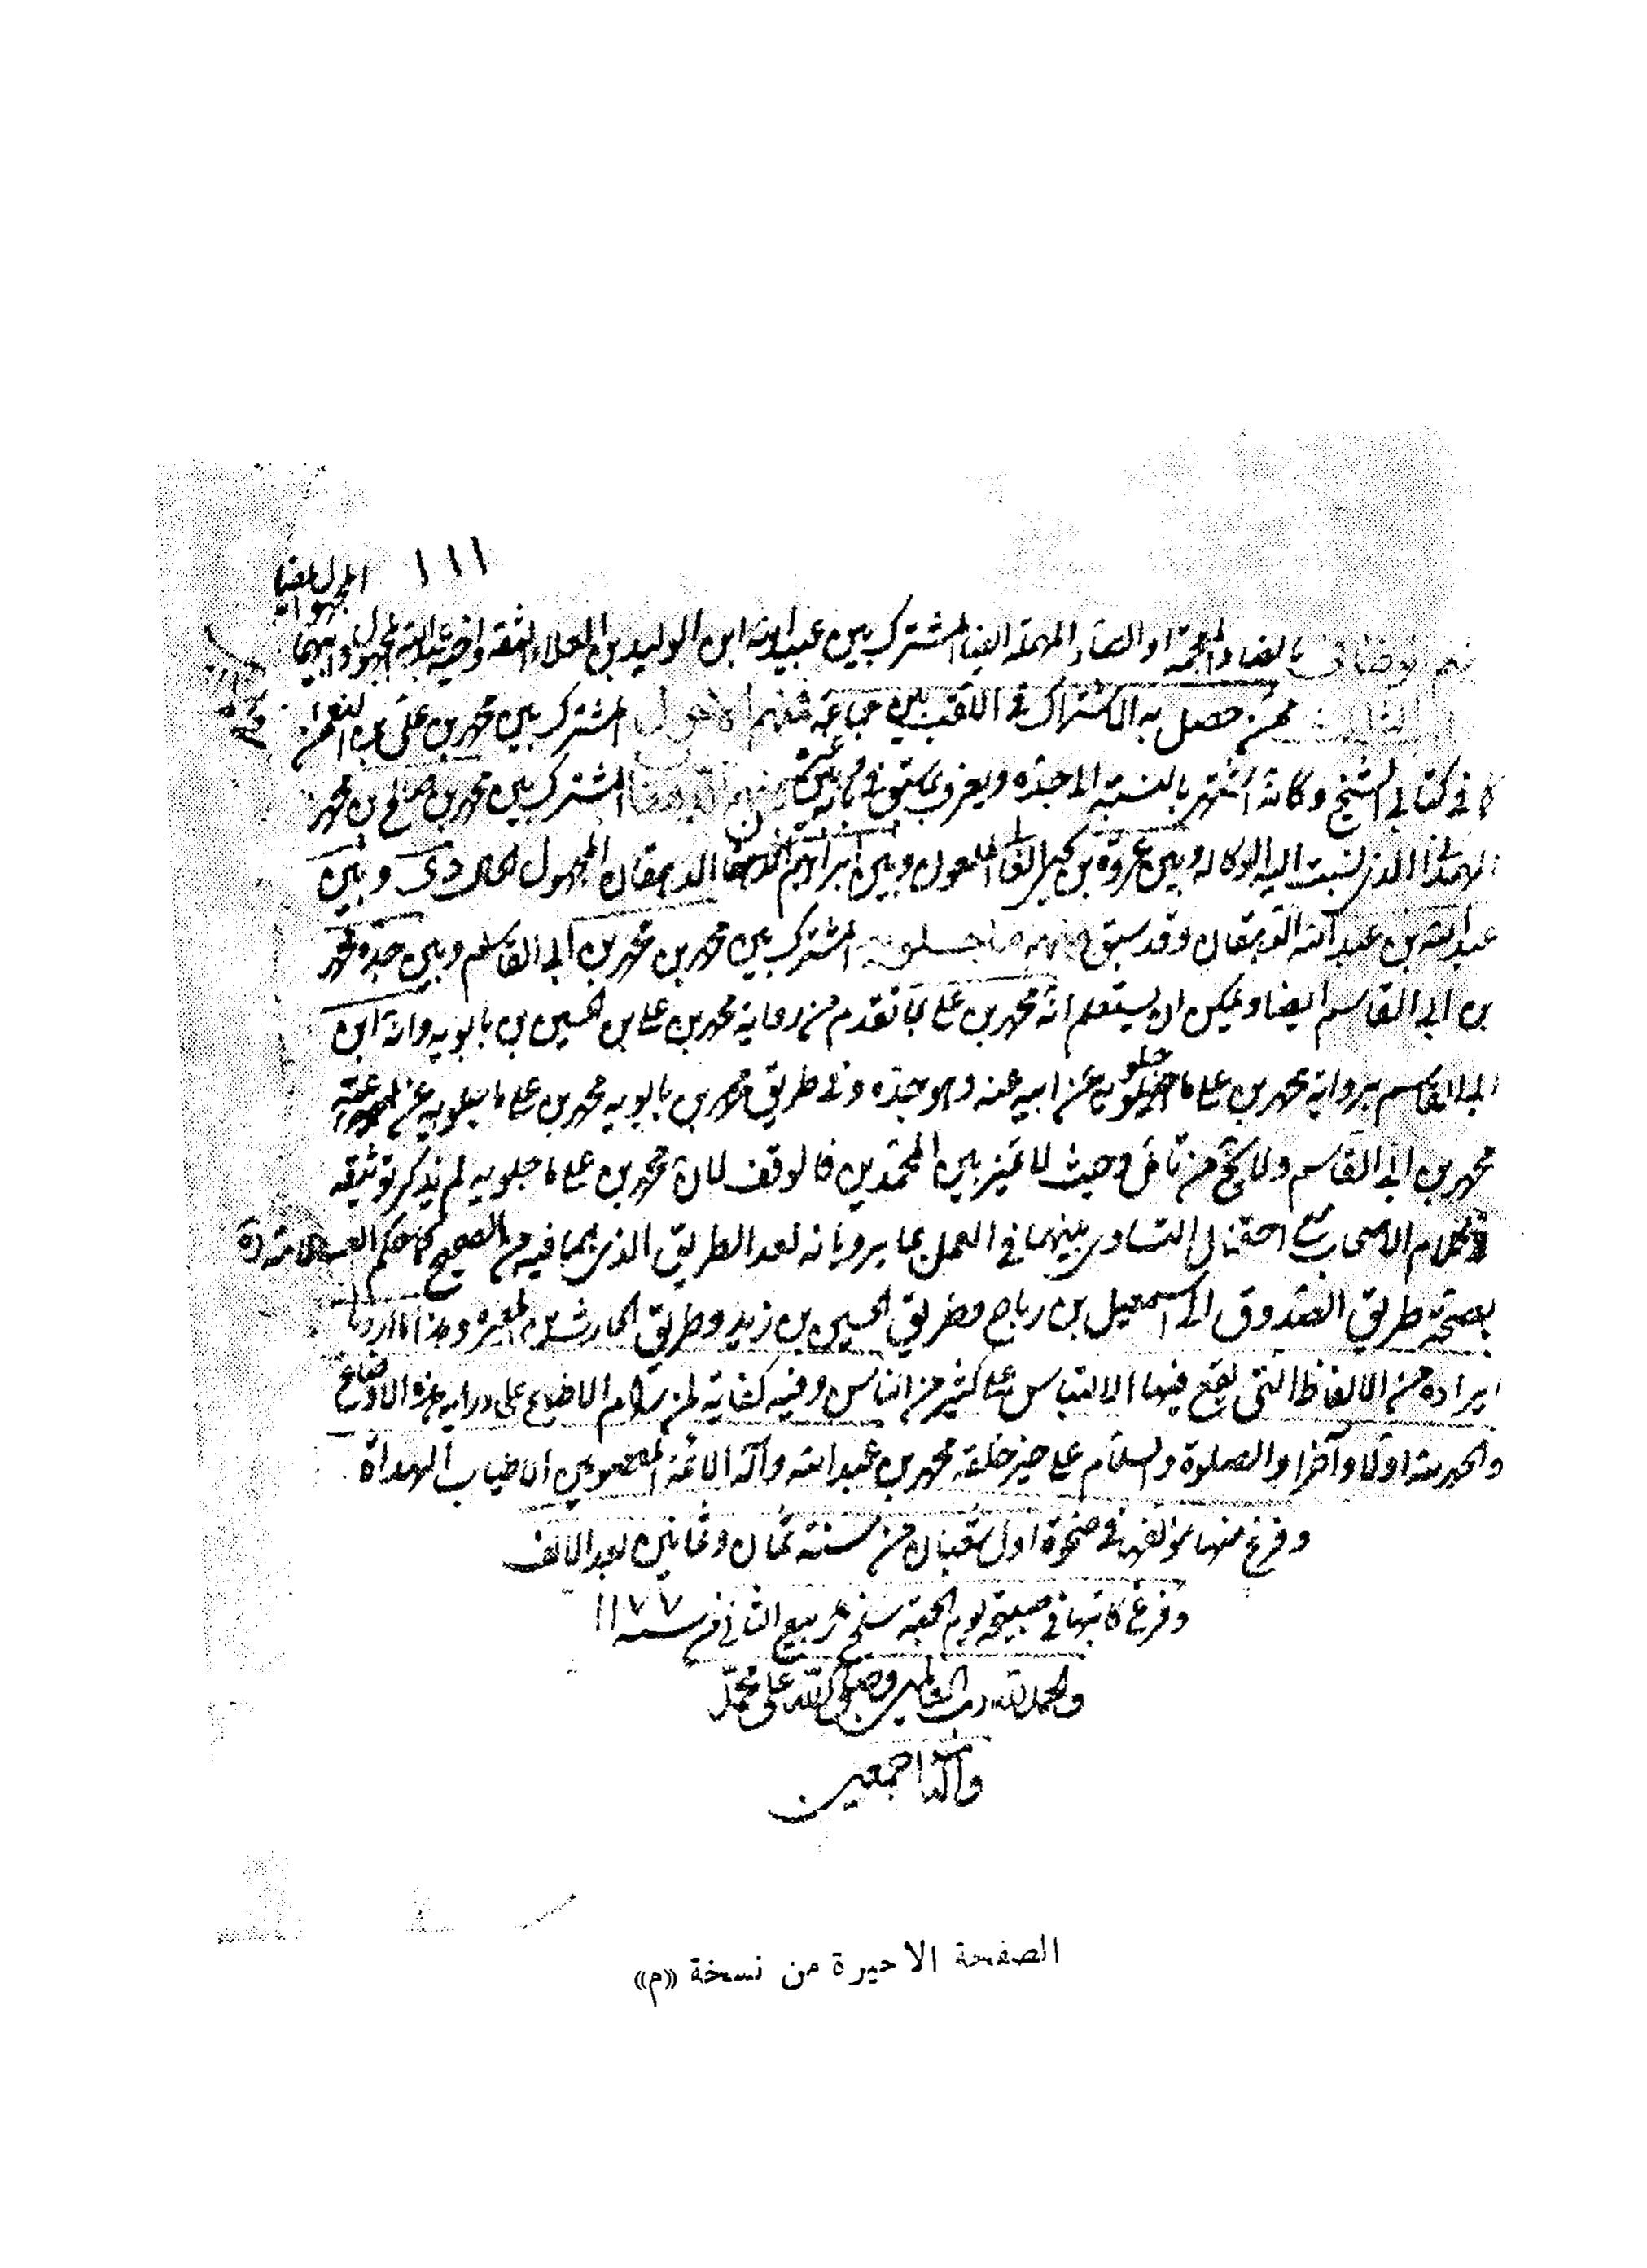 ١١١
بالضاد المعجمة او الصاد المهملة ايضا المشترك بين عبيدالله ابن الوليد بن العلاء الثقة واخيه
ممن حصل به الاشتراك في اللقب بين جماعة فمنهم الاحول المشترك بين محمد بن علي بن النعمن
كما في كتابي الشيخ وكانه اشتهر بالنسبة الى جده ويعرف بما سبق في المشترك بين محمد بن صالح بن محمد
الهمداني الذي نسبت اليه الوكالة وبين عروة بن يحيى الملعون وبين ابراهيم الدهقان المجهول وبين
عبدالله بن عبدالله الدهقان وقد سبق ومنهم ماجيلويه المشترك بين محمد بن محمد بن ابي القاسم وبين جده محمد
بن ابي القاسم ايضا ويمكن ان يستعلم انه محمد بن علي بما تقدم من رواية محمد بن علي بن الحسين بن بابويه وانه ابن
ابي القاسم برواية محمد بن علي ماجيلويه عن ابيه عنه وهو جده وفي طريق محمد بن بابويه محمد بن علي ماجيلويه عن عمه
محمد بن ابي القاسم ولا يخ من تامل وحيث لا تميز بين المحمدين فالوقف لان محمد بن علي ماجلويه لم يذكر توثيقه
في كلام الاصحاب مع احتمال التساوي بينهما في العمل بما يرويانه لعد الطريق الذي هما فيه من الصحيح كما حكم العلامة ره
بصحة طريق الصدوق الى اسمعيل بن رباح وطريق الحسين بن زيد وطريق الحارث بن المغيرة وهذا ما اردنا
ايراده من الالفاظ التي يقع فيها الالتباس على كثير من الناس وفيه كفاية لمن رام الاطلاع على دراية هذه الاوضاع
والحمد لله اولا وآخرا والصلوة والسلام على خير خلقه محمد بن عبدالله وآله الائمة المعصومين الاطياب الهداة
وفرغ منها مؤلفها في ضحوة اول شعبان من سنة ثمان وثمانين بعد الالف
وفرغ كاتبها في صبيحة يوم الجمعة سلخ ربيع الثاني من سنه ١١٧٧
والحمد لله رب العالمين وصلى الله على محمد
وآله اجمعين
الصفحة الاخيرة من نسخة «م»